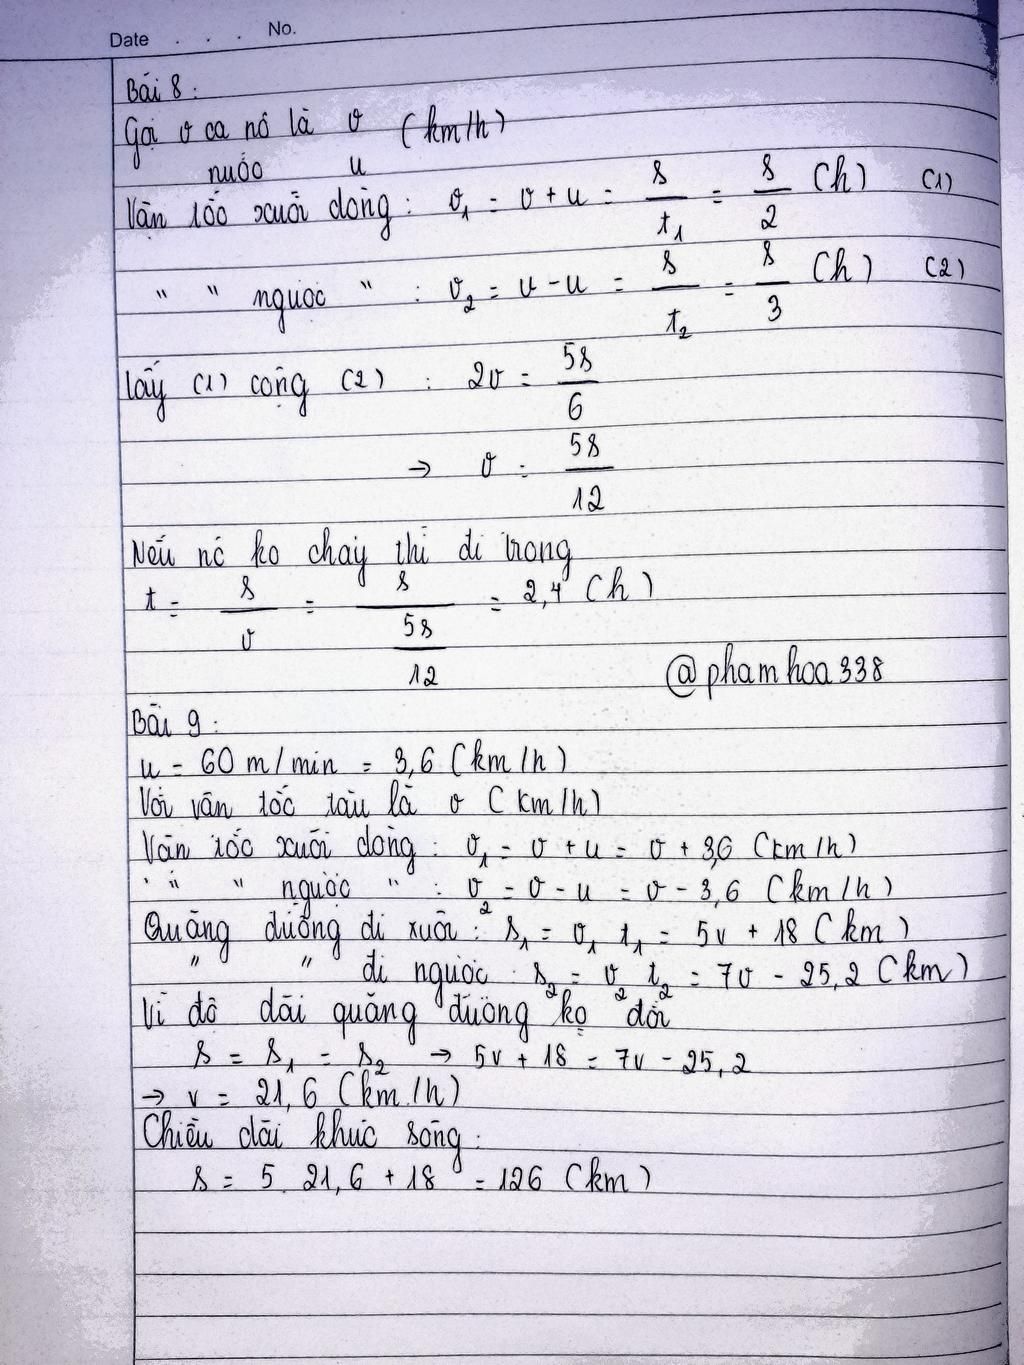 Date . . . No.
Bài 8:
Gọi v ca nô là v (km/h)
nước u
Vận tốc xuôi dòng: v₁ = v + u = s/t₁ = s/2 (h) (1)
" " ngược " : v₂ = v - u = s/t₂ = s/3 (h) (2)
lấy (1) cộng (2) : 2v = 5s/6
→ v = 5s/12
Nếu nó ko chảy thì đi trong
t = s/v = s/(5s/12) = 2,4 (h)
@phamhoa338
Bài 9:
u = 60 m/min = 3,6 (km/h)
Với vận tốc tàu là v (km/h)
Vận tốc xuôi dòng: v₁ = v + u = v + 3,6 (km/h)
" " ngược " : v₂ = v - u = v - 3,6 (km/h)
Quãng đường đi xuôi: s₁ = v₁ t₁ = 5v + 18 (km)
" " đi ngược : s₂ = v₂ t₂ = 7v - 25,2 (km)
Vì độ dài quãng đường ko đổi
s = s₁ = s₂ → 5v + 18 = 7v - 25,2
→ v = 21,6 (km/h)
Chiều dài khúc sông:
s = 5. 21,6 + 18 = 126 (km)